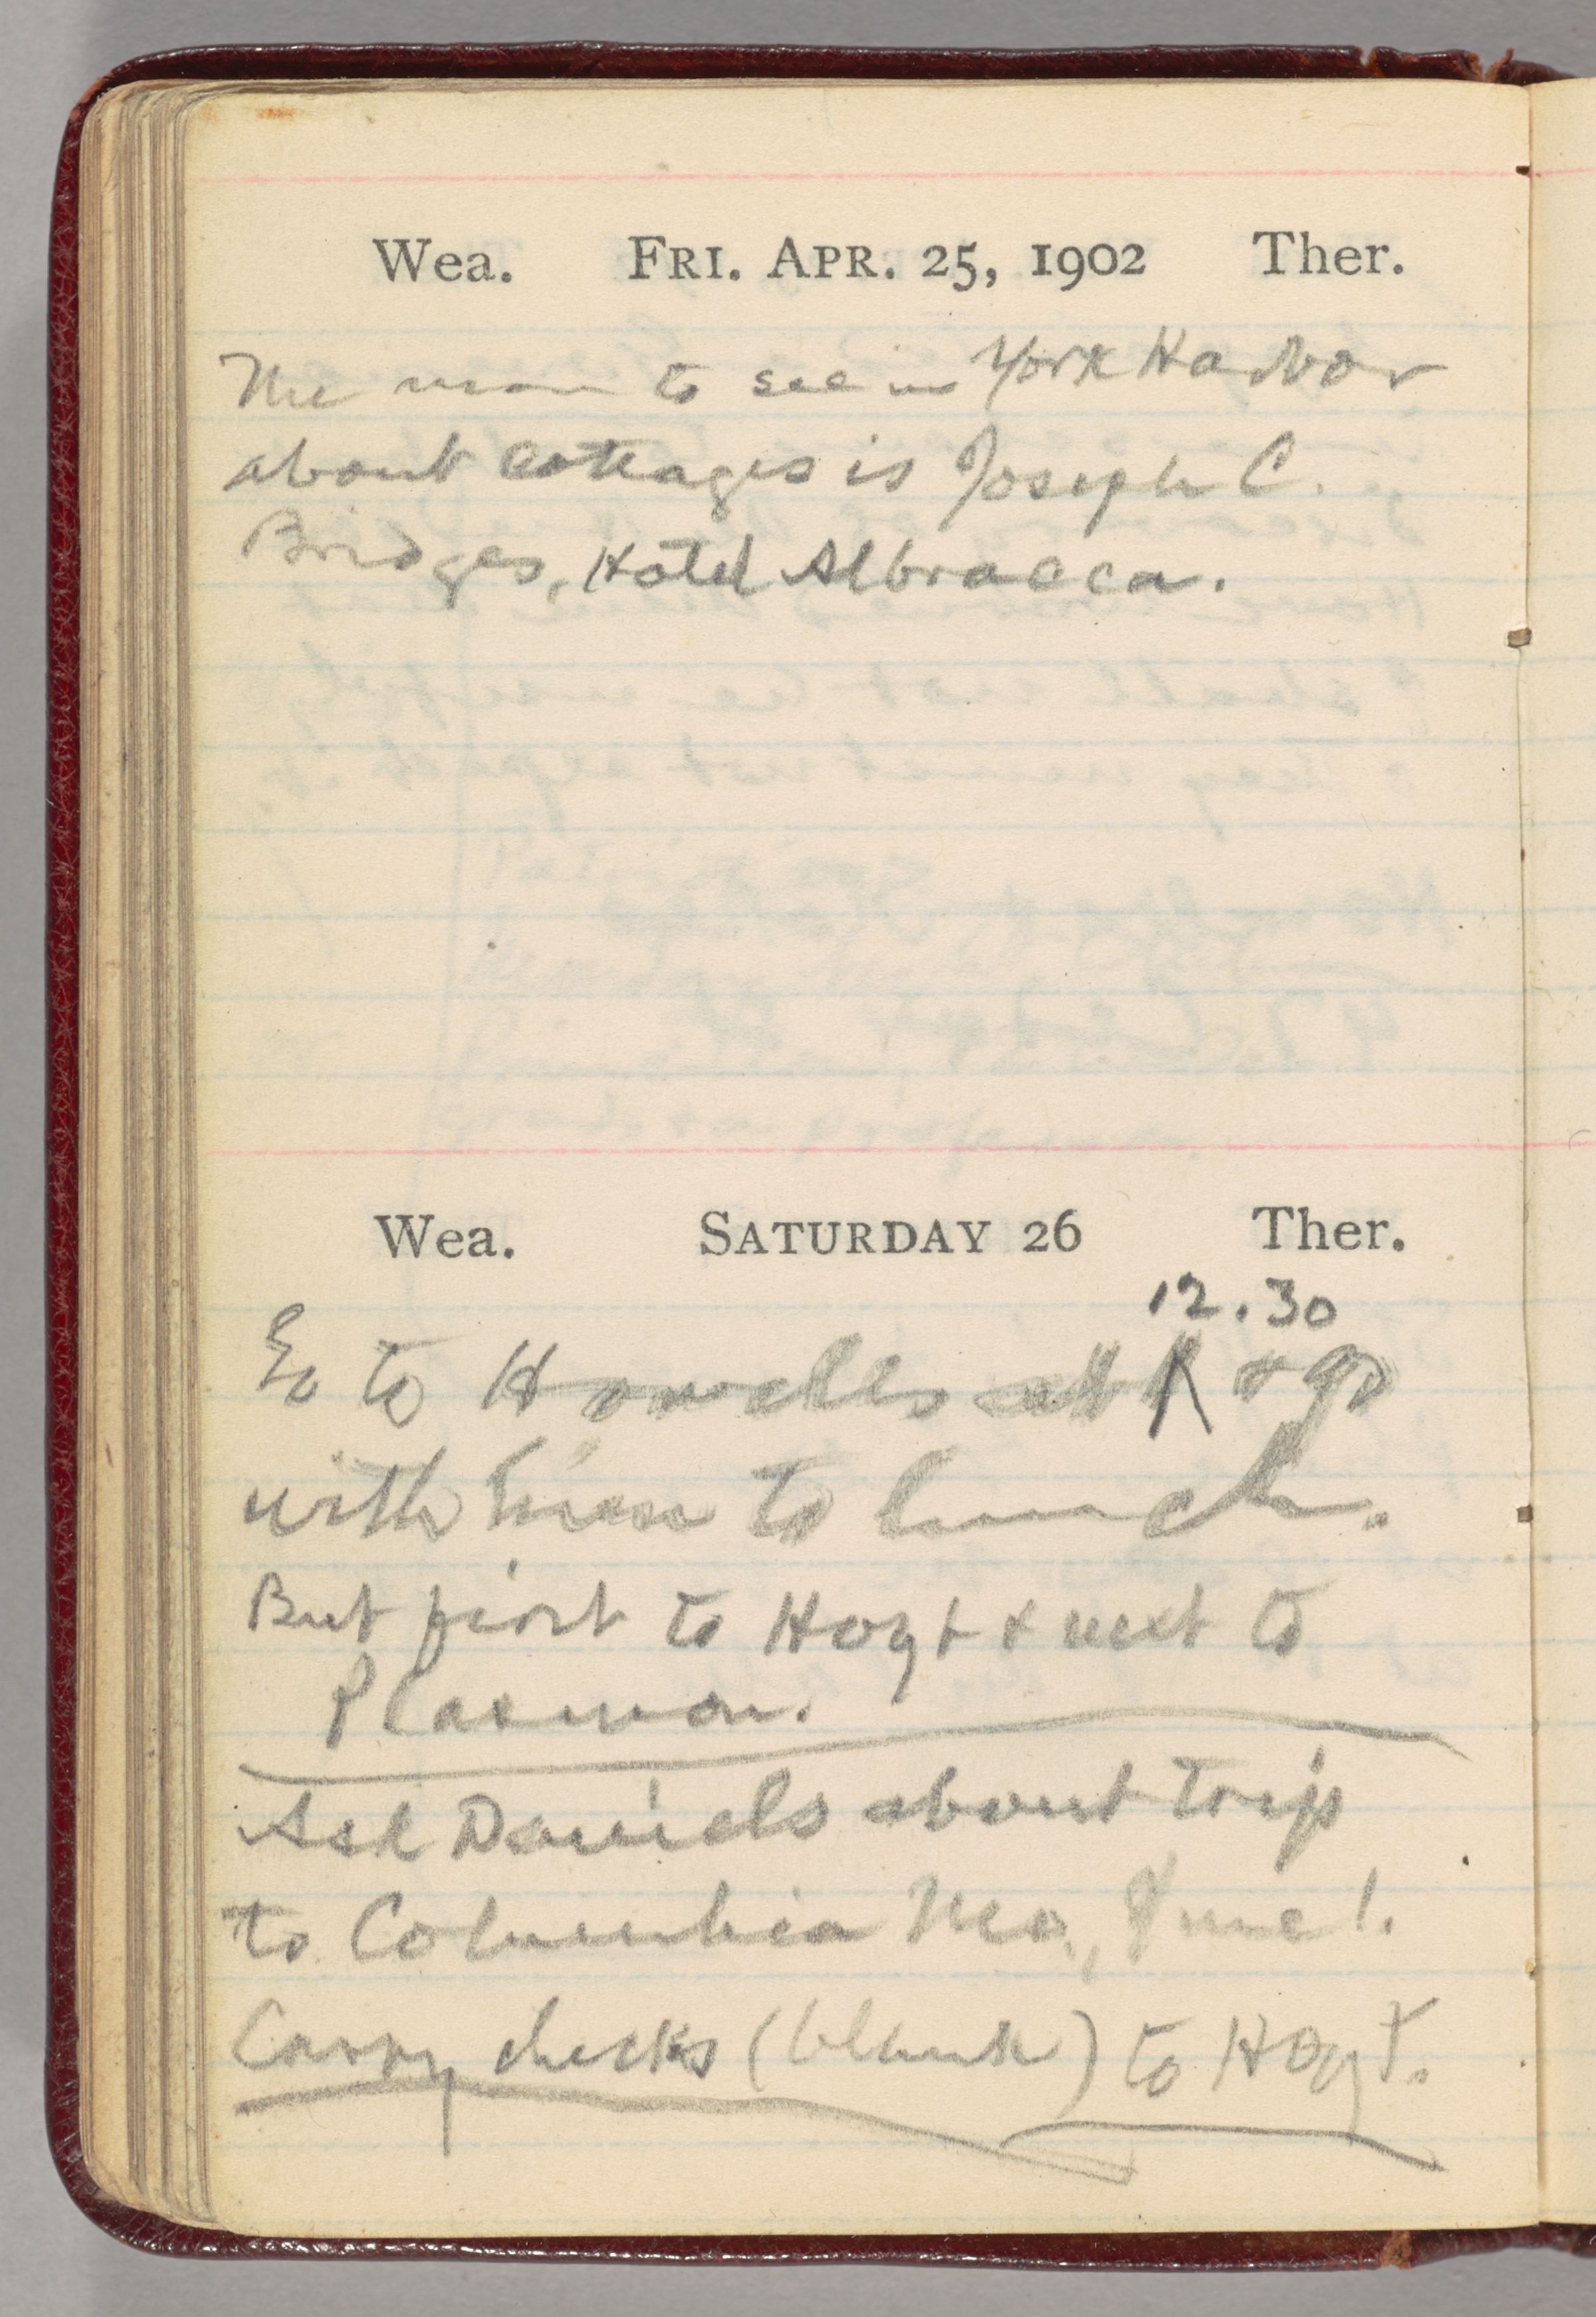 Wea. FRI. APR. 25, 1902 Ther.
The man to see in York Harbor
about cottages is Joseph C.
Bridges, Hotel Albracca.
Wea. SATURDAY 26 Ther.
12.30
Go to Howells at & go
with him to lunch.
But first to Hoyt & next to
Plasmon.
Ask Daniels about trip
to Columbia Mo., June 1.
Carry checks (blank) to Hoyt.